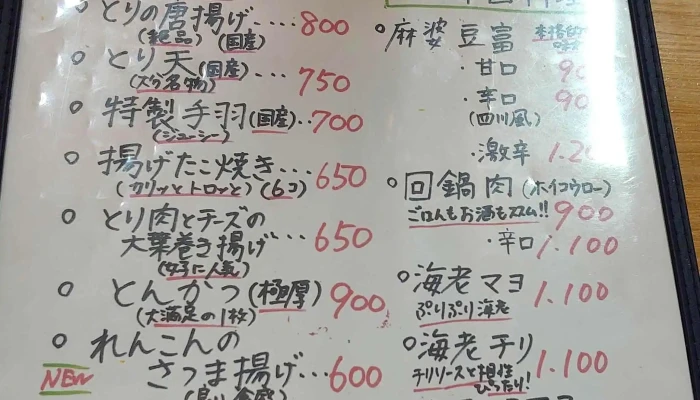 ○とりの唐揚げ…800
(絶品)(国産)
○とり天(国産)…750
(大分名物)
○特製手羽(国産)…700
(ジューシー)
○揚げたこ焼き…650
(カリッとトロッと)(6コ)
○とり肉とチーズの
大葉巻き揚げ…650
(女子に人気)
○とんかつ(極厚)900
(大満足の1枚)
○れんこんの
NEW さつま揚げ…600
○麻婆豆富
・甘口
・辛口
(四川風)
・激辛
○回鍋肉(ホイコウロー)
ごはんもお酒もススム!! 900
・辛口 1.100
○海老マヨ 1.100
ぷりぷり海老
○海老チリ 1.100
チリソースと相性
ぴったり!